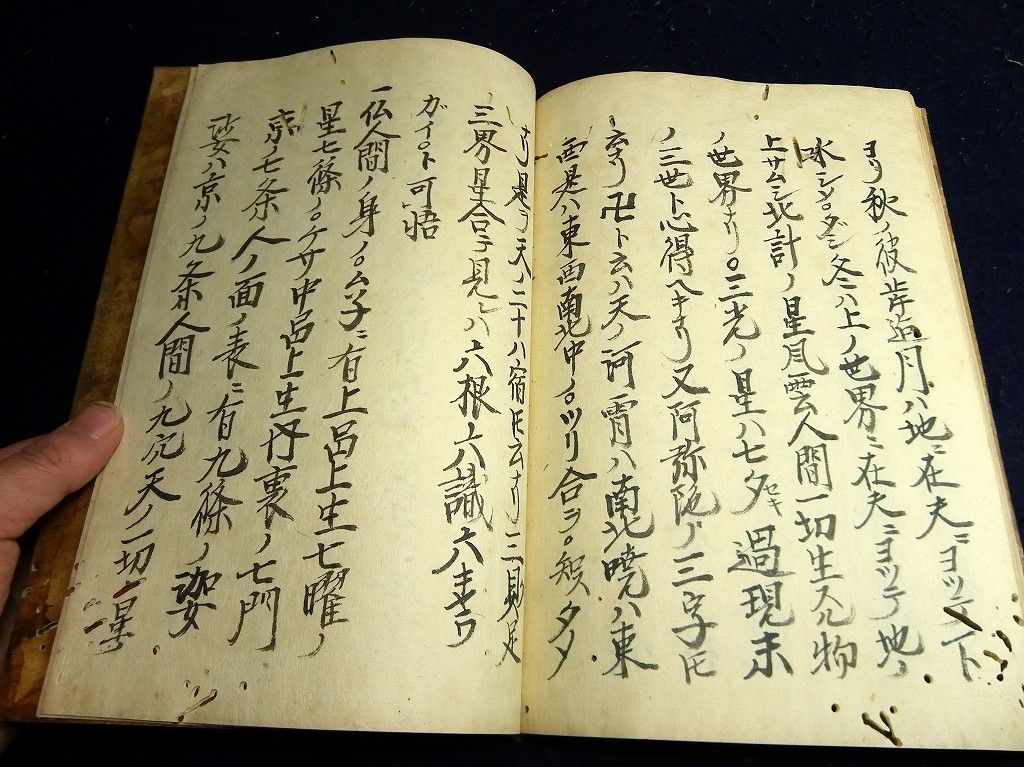 ヨリ秋ノ彼岸迄月ハ地ニ在夫ニヨツテ下
水シタシ冬ニハ上ノ世界ニ在夫ニヨツテ地ノ
上サムシ北計ノ星風雲人間一切生スル物
ノ世界ナリ。三光ノ星ハ七夕セキ過現未
ノ三世ト心得ヘキナリ又阿弥陀ノ三字トモ
云ナリ卍ト云ハ天ノ河宵ハ南北暁ハ東
西是ハ東西南北中ノ。ツリ合ヲ。知ヌタメ
ナリ是ヲ天ノ二十八宿トモ云ナリ三
三界星合ヲ見レハ六根六識六
ガイ。ト可悟
一仏人間ノ身ノ。ム子ニ有上品上生七曜ノ
星七條ノ。ケサ中品上生丹裏ノ七門
京ノ七条人ノ面ノ表ニ有九條ノ袈
娑ハ京ノ九条人間ノ九穴天ノ一切ノ星